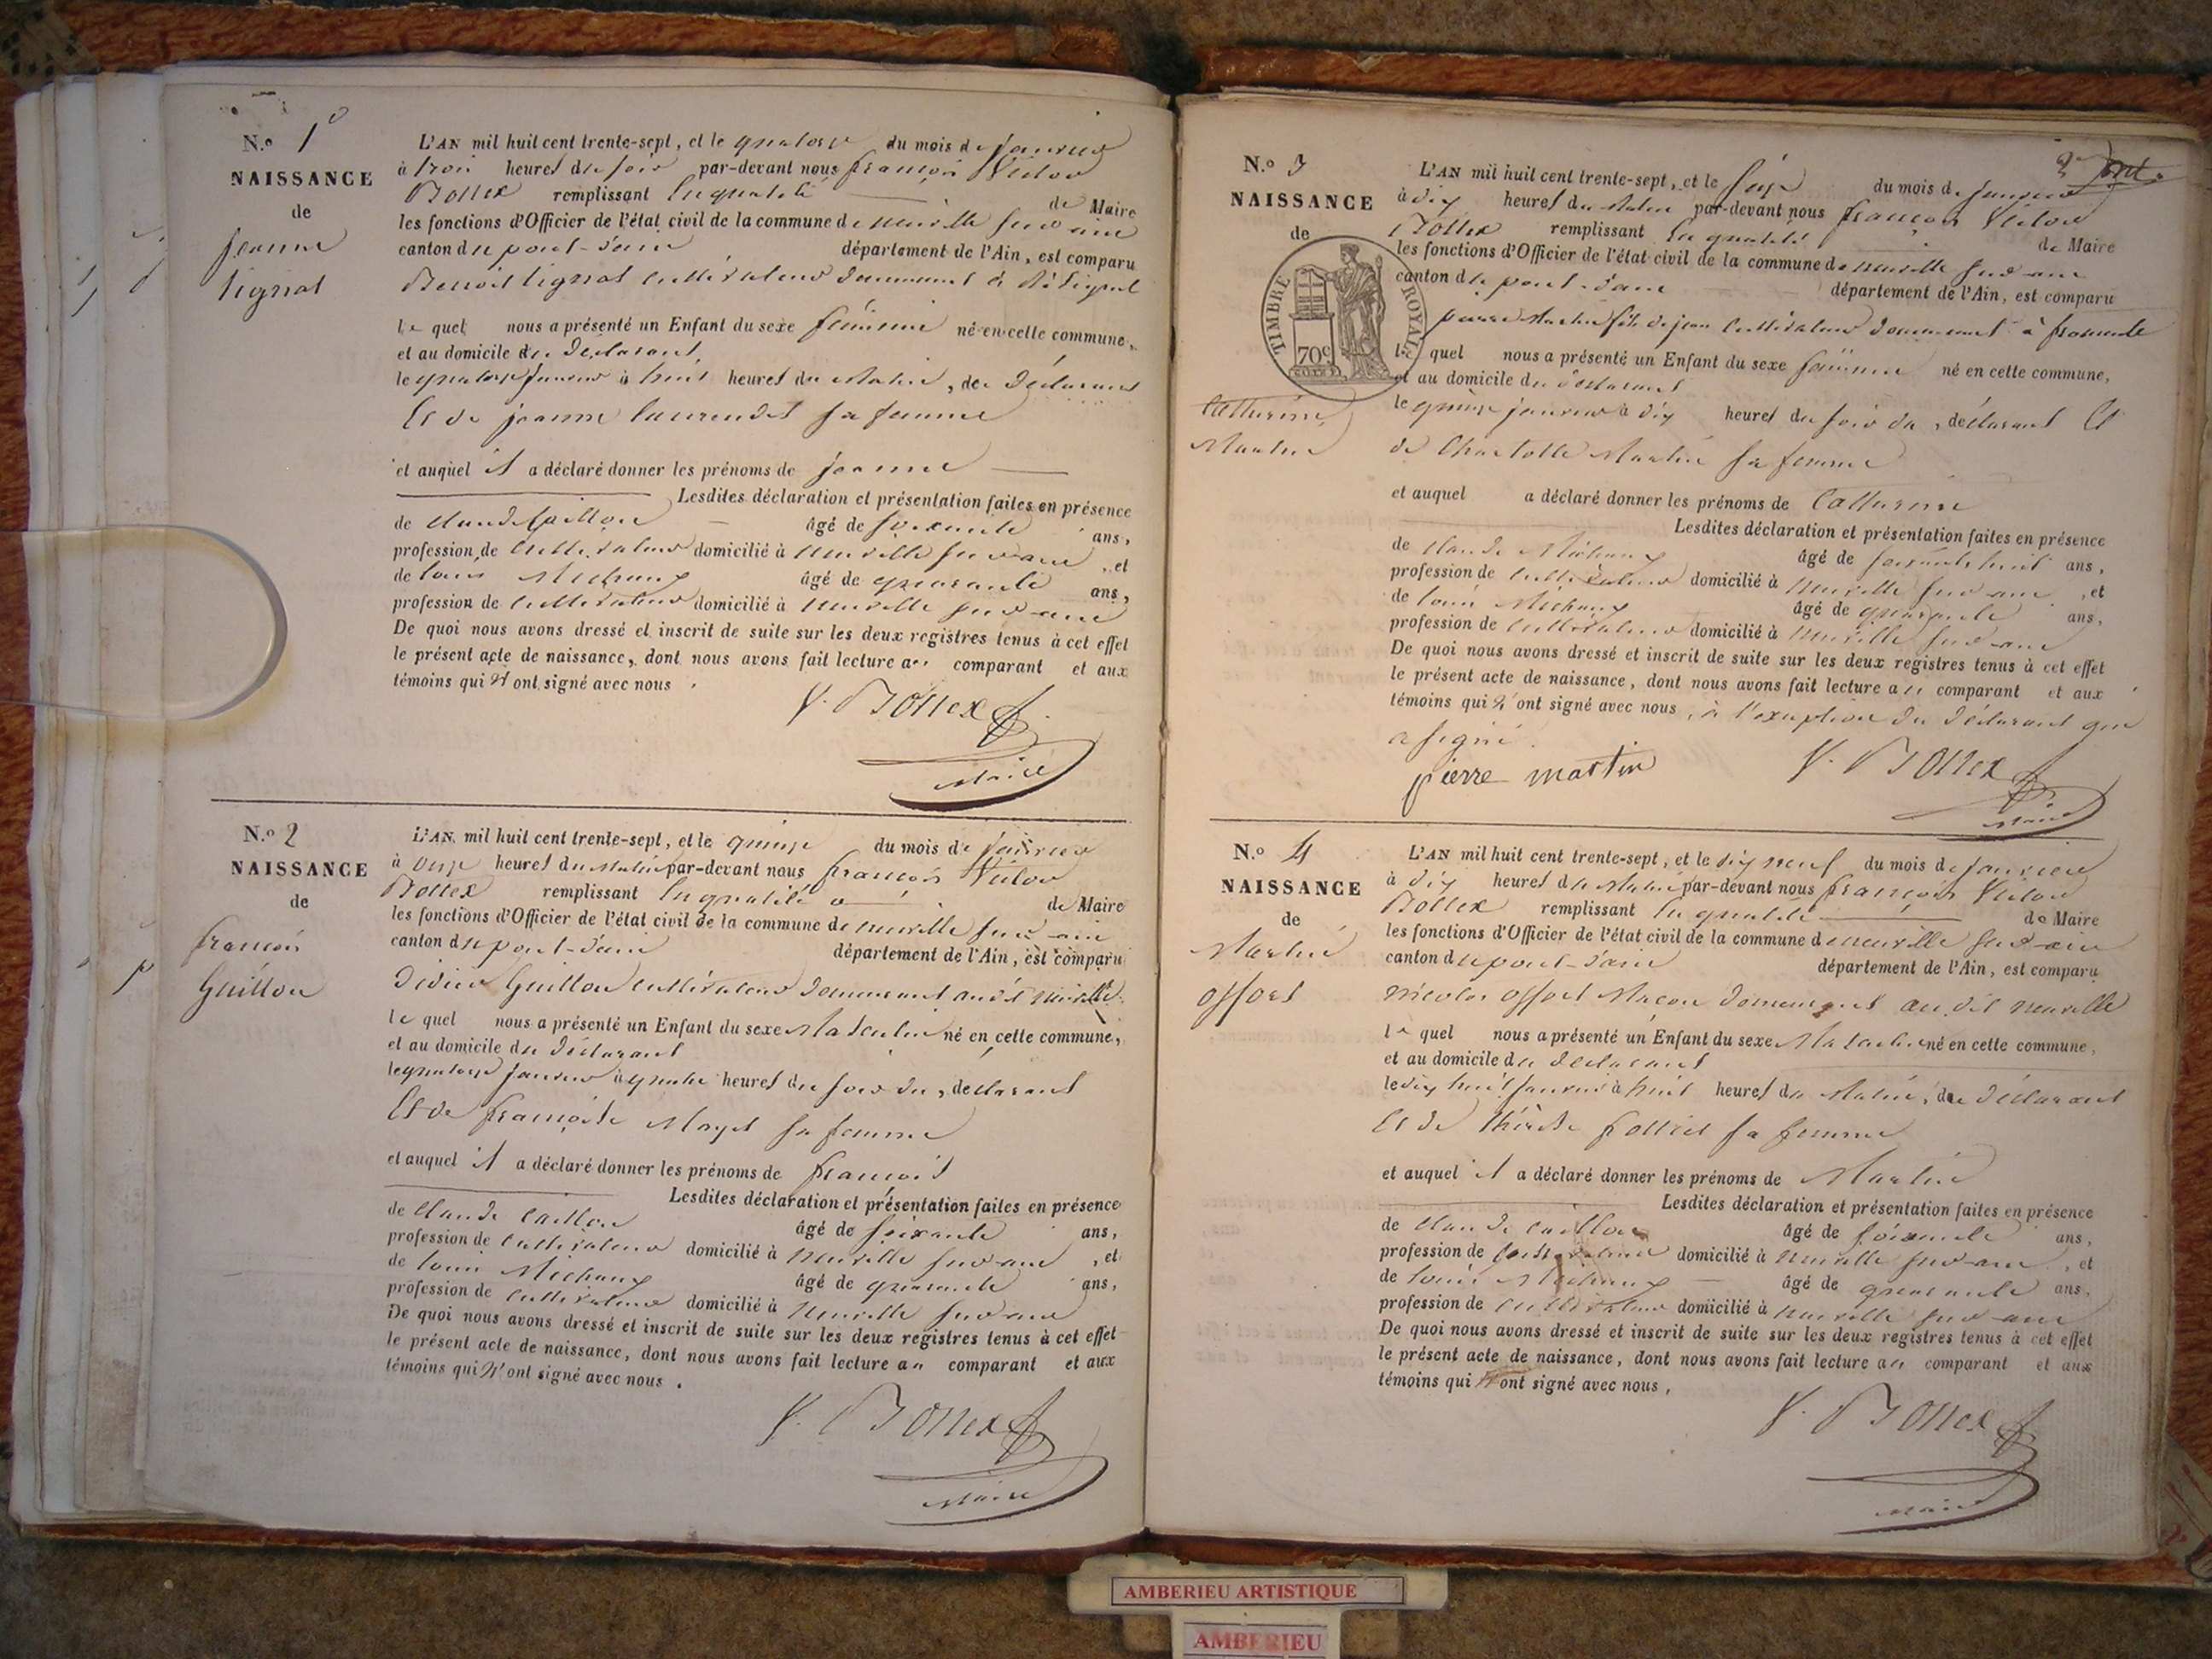 N.º 1
NAISSANCE
de
jeanne
tignat
L'AN mil huit cent trente-sept, et le quatorze du mois de janvier
à trois heures du soir par-devant nous françois Victor
Bollex remplissant la qualité de Maire
les fonctions d'Officier de l'état civil de la commune de neuville sur ain
canton de pont-d'ain département de l'Ain, est comparu
Benoit tignat cultivateur demeurant à
le quel nous a présenté un Enfant du sexe féminin né en cette commune,
et au domicile du déclarant,
le quatorze janvier à huit heures du matin, du déclarant
Et de jeanne sa femme
et auquel il a déclaré donner les prénoms de jeanne
Lesdites déclaration et présentation faites en présence
de claude Caillon âgé de soixante ans,
profession de cultivateur domicilié à neuville sur ain, et
de louis Michaux âgé de quarante ans,
profession de cultivateur domicilié à neuville sur ain
De quoi nous avons dressé et inscrit de suite sur les deux registres tenus à cet effet
le présent acte de naissance, dont nous avons fait lecture au comparant et aux
témoins qui n'ont signé avec nous.
V. Bollex
Maire
N.º 2
NAISSANCE
de
françois
Guillon
L'AN mil huit cent trente-sept, et le quinze du mois de janvier
à onze heures du matin par-devant nous françois Victor
Bollex remplissant la qualité de Maire
les fonctions d'Officier de l'état civil de la commune de neuville sur ain
canton de pont-d'ain département de l'Ain, est comparu
Didier Guillon cultivateur demeurant au dit neuville
le quel nous a présenté un Enfant du sexe Masculin né en cette commune,
et au domicile du déclarant
le quatorze janvier à quatre heures du soir du, déclarant
Et de françoise Mayet sa femme
et auquel il a déclaré donner les prénoms de françois
Lesdites déclaration et présentation faites en présence
de claude Caillon âgé de soixante ans,
profession de cultivateur domicilié à neuville sur ain, et
de louis Michaux âgé de quarante ans,
profession de cultivateur domicilié à neuville sur ain
De quoi nous avons dressé et inscrit de suite sur les deux registres tenus à cet effet
le présent acte de naissance, dont nous avons fait lecture au comparant et aux
témoins qui n'ont signé avec nous.
V. Bollex
Maire
N.º 3
NAISSANCE
de
TIMBRE ROYAL
70c
Catherine
Martin
L'AN mil huit cent trente-sept, et le seize du mois de janvier
à dix heures du matin par-devant nous françois Victor
Bollex remplissant la qualité de Maire
les fonctions d'Officier de l'état civil de la commune de neuville sur ain
canton de pont-d'ain département de l'Ain, est comparu
pierre Martin fils de jean cultivateur demeurant à fromente
le quel nous a présenté un Enfant du sexe féminin né en cette commune,
et au domicile du déclarant
le quinze janvier à dix heures du soir du, déclarant Et
de Charlotte Martin sa femme
et auquel a déclaré donner les prénoms de Catherine
Lesdites déclaration et présentation faites en présence
de claude Michaux âgé de soixante huit ans,
profession de cultivateur domicilié à neuville sur ain, et
de louis Michaux âgé de quarante ans,
profession de cultivateur domicilié à neuville sur ain
De quoi nous avons dressé et inscrit de suite sur les deux registres tenus à cet effet
le présent acte de naissance, dont nous avons fait lecture au comparant et aux
témoins qui n'ont signé avec nous, à l'exception du déclarant qui
a signé.
pierre martin V. Bollex
Maire
N.º 4
NAISSANCE
de
Martin
offort
L'AN mil huit cent trente-sept, et le dix neuf du mois de janvier
à dix heures du matin par-devant nous françois Victor
Bollex remplissant la qualité de Maire
les fonctions d'Officier de l'état civil de la commune de neuville sur ain
canton de pont-d'ain département de l'Ain, est comparu
nicolas offort Maçon demeurant au dit neuville
le quel nous a présenté un Enfant du sexe Masculin né en cette commune,
et au domicile du déclarant
le dix huit janvier à huit heures du matin, du déclarant
Et de thérèse sa femme
et auquel il a déclaré donner les prénoms de Martin
Lesdites déclaration et présentation faites en présence
de claude caillon âgé de soixante ans,
profession de cultivateur domicilié à neuville sur ain, et
de louis Michaux âgé de quarante ans.
profession de cultivateur domicilié à neuville sur ain
De quoi nous avons dressé et inscrit de suite sur les deux registres tenus à cet effet
le présent acte de naissance, dont nous avons fait lecture au comparant et aux
témoins qui n'ont signé avec nous,
V. Bollex
Maire
AMBERIEU ARTISTIQUE
AMBERIEU